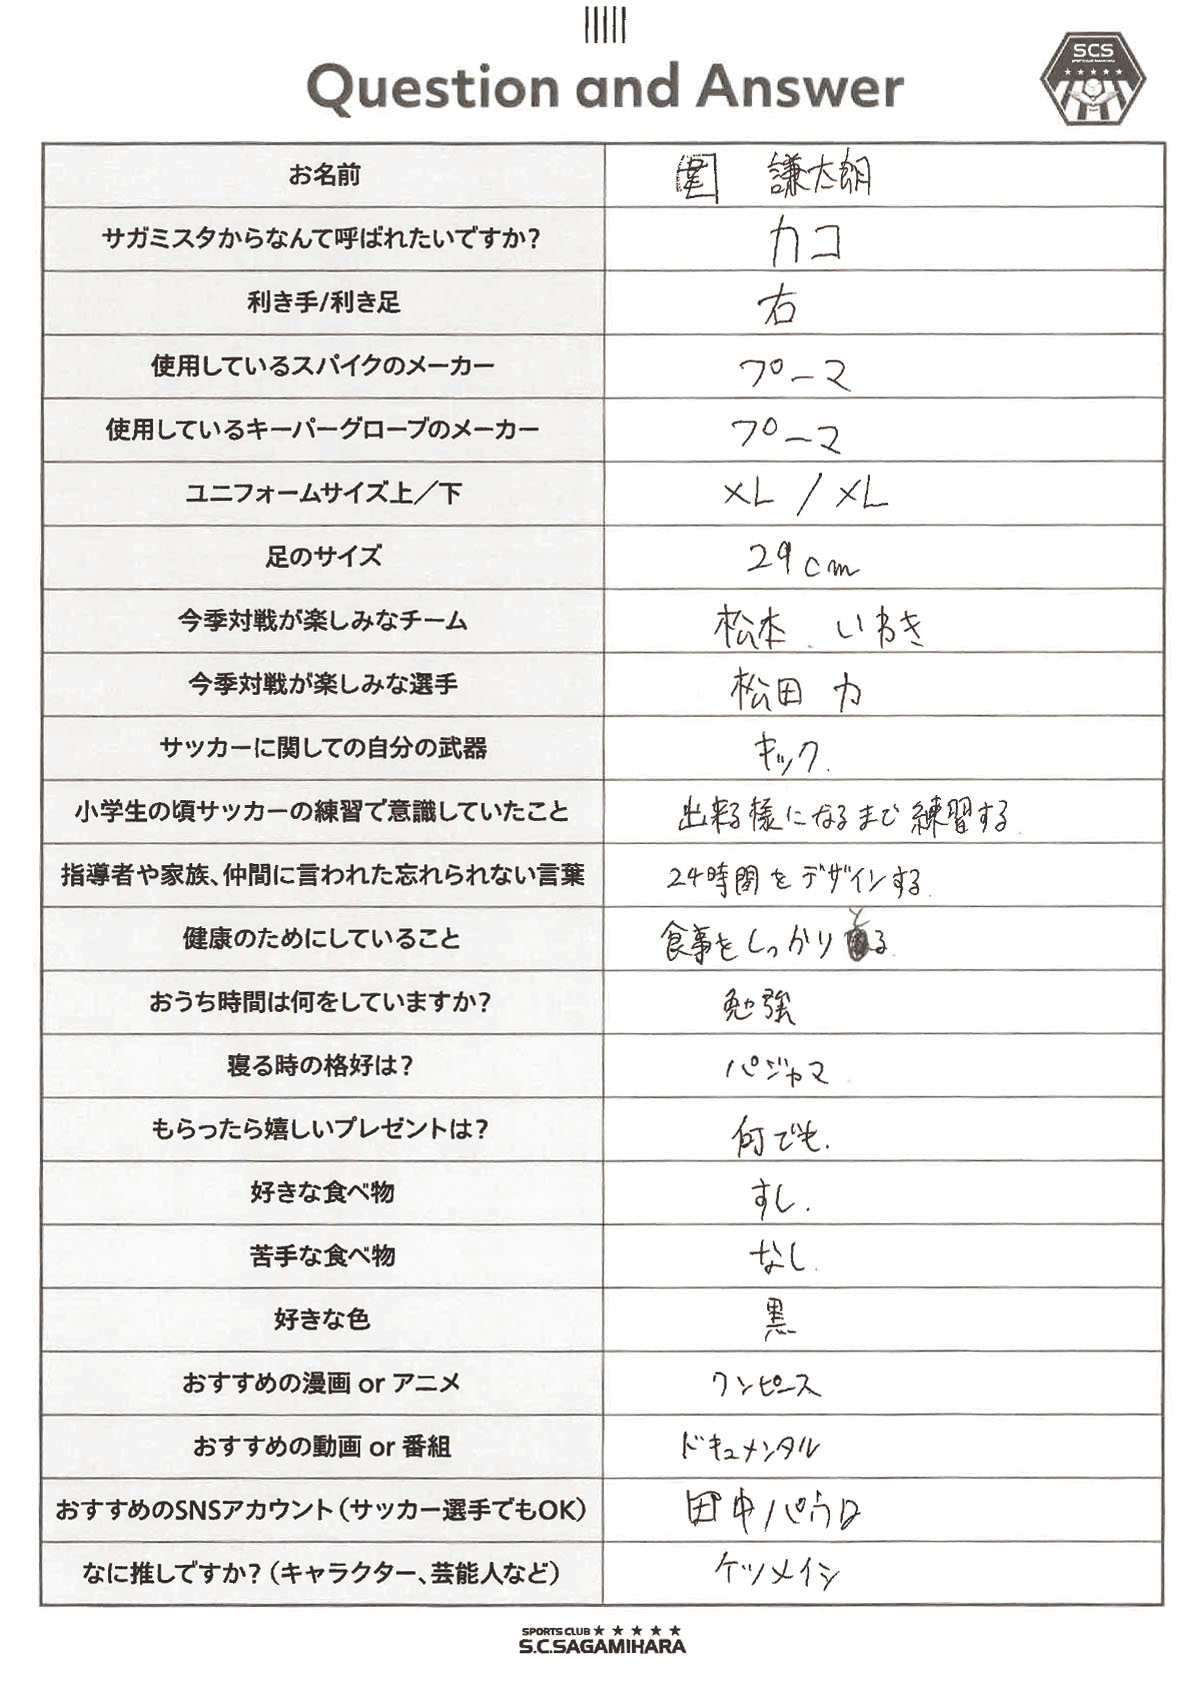 Question and Answer
SCS
お名前 圍 謙太朗
サガミスタからなんて呼ばれたいですか? カコ
利き手/利き足 右
使用しているスパイクのメーカー プーマ
使用しているキーパーグローブのメーカー プーマ
ユニフォームサイズ上／下 XL / XL
足のサイズ 29cm
今季対戦が楽しみなチーム 松本、いわき
今季対戦が楽しみな選手 松田 力
サッカーに関しての自分の武器 キック.
小学生の頃サッカーの練習で意識していたこと 出来る様になるまで練習する
指導者や家族、仲間に言われた忘れられない言葉 24時間をデザインする.
健康のためにしていること 食事をしっかりとる.
おうち時間は何をしていますか? 勉強
寝る時の格好は? パジャマ
もらったら嬉しいプレゼントは? 何でも.
好きな食べ物 すし.
苦手な食べ物 なし.
好きな色 黒
おすすめの漫画 or アニメ ワンピース
おすすめの動画 or 番組 ドキュメンタル
おすすめのSNSアカウント（サッカー選手でもOK） 田中パウロ
なに推しですか?（キャラクター、芸能人など） ケツメイシ
SPORTS CLUB ★ ★ ★ ★ ★
S.C.SAGAMIHARA